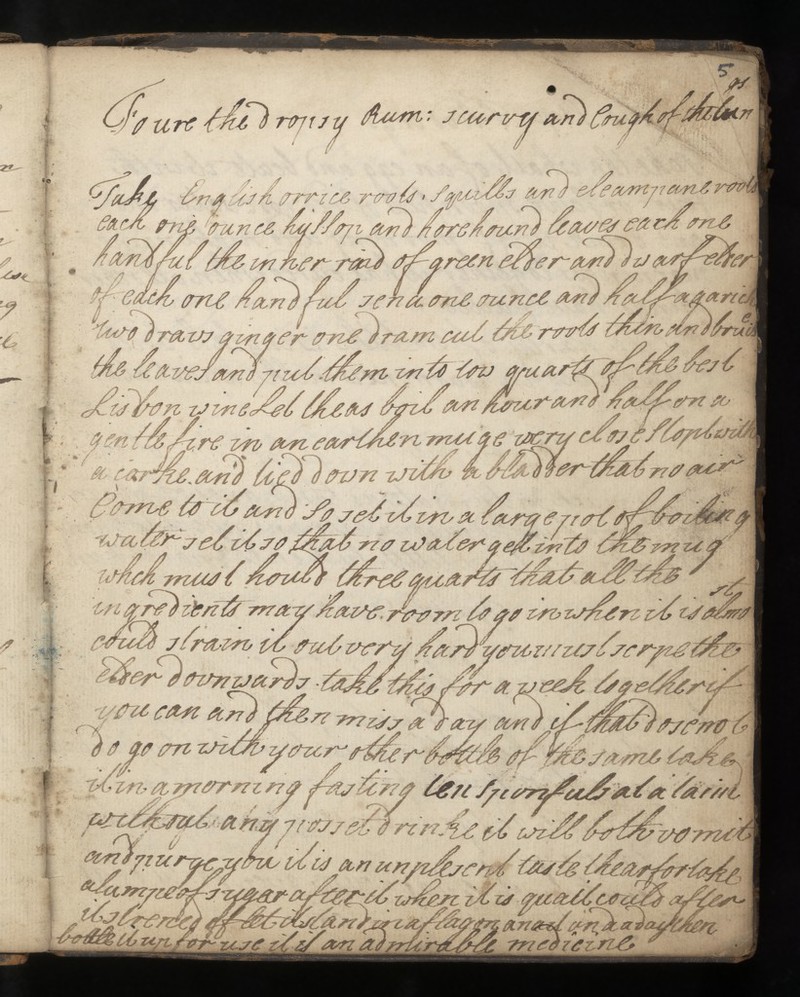 5
To ure the dropsy Rum: scurvy and Cough of the lungs
Take English orrice roots, squills and eleampane roots
each one ounce hyssop and horehound leaves each one
handful the inner rind of green elder and dwarf elder
of each one handful sena one ounce and half agarick
two drams ginger one dram cut the roots thin and bruise
the leaves and put them into tow quarts of the best
Lisbon wine Let theas boil an hour and half on a
gentle fire in an earthen muge very close stopt with
a carke and tied down with a bladder that no air
Come to it and so set it in a large pot of boiling
water set it so that no water get into the mug
whch must hould three quarts that all the
ingredients may have room to go in when it is almost
could strain it out very hard you must scrpe the
elder downwards take this for a week together if
you can and then miss a day and if that dose not
do go on with your other bottle of the same take
it in a morning fasting ten sponfuls at a time
without any posset drinke it will both vomit
and purge you it is an unplesent taste thearfor take
a lumpe of sugar after it when it is quait could after
it is strened let it stand in a flagon and a day then
bottle it up for use it is an admirable medicine